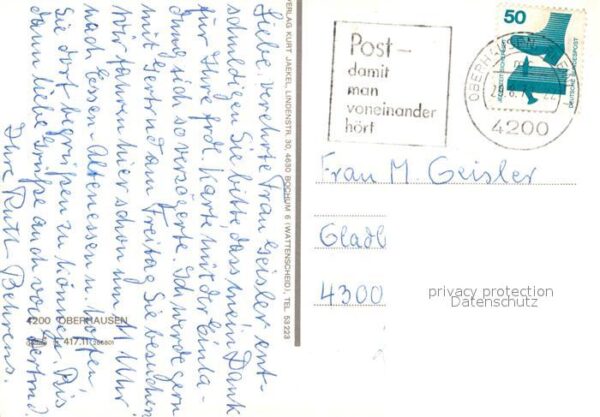 Liebe, verehrte Frau Geisler, ent-
schuldigen Sie bitte, dass mein Dank
für Ihre frdl. Karte mit der Einla-
dung sich so verzögerte. Ich werde gern
mit Gertrud am Freitag Sie besuchen
Wir fahren hier schon um 11 Uhr
nach Essen-Altenessen u. hoffen
Sie dort begrüßen zu können. Bis
dann liebe Grüße auch von Gertrud
Ihre Ruth Behrens.
4200 OBERHAUSEN
417.11
VERLAG KURT JAEKEL, LINDENSTR. 30, 4630 BOCHUM 6 (WATTENSCHEID), TEL. 53223
Post-
damit
man
voneinander
hört
50
DEUTSCHE BUNDESPOST
4200
Frau M. Geisler
Gladb
4300
privacy protection
Datenschutz